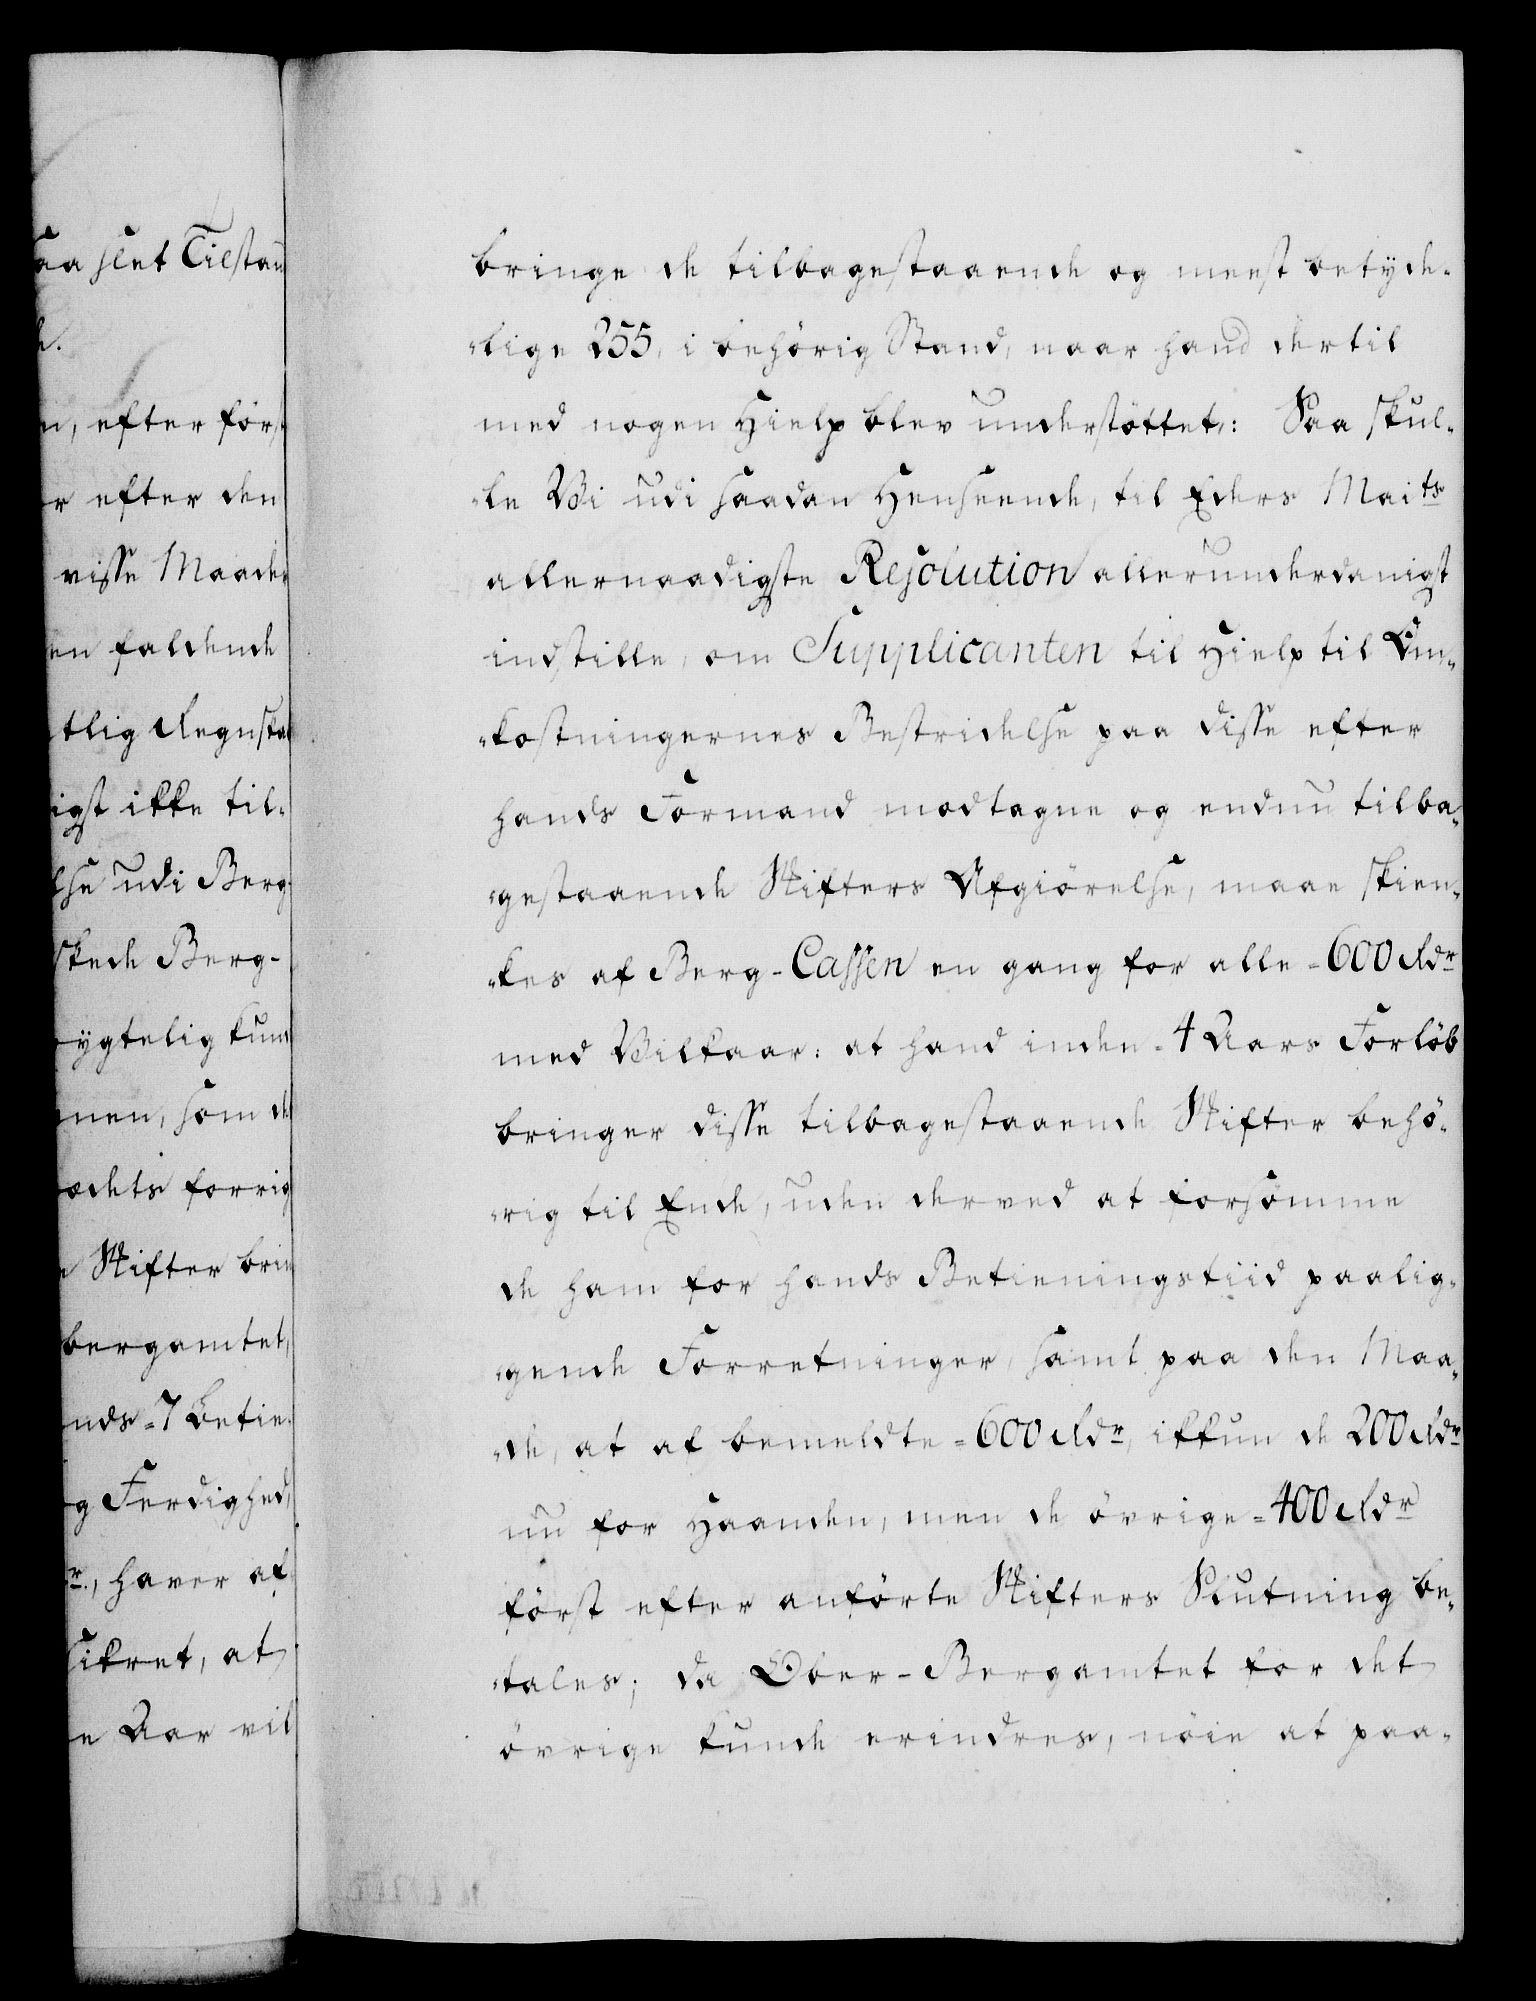 saa slet Tilstan
e.
n, efter först
r efter den
visse Maader
en faldende
tlig Regnska
igst ikke til-
lse udi Berg
skede Berg-
ygtelig kun
men, som de
ædets forrig
e Skifter brin
bergamtet,
nds 7 Betie-
g Ferdighed,
r., haver af
sikret, at
e Aar vil
bringe de tilbagestaaende og meest betyde-
-lige 255, i behörig Stand, naar hand dertil
med nogen Hielp blev understöttet,: Saa skul-
-le Vi udi saadan Henseende, til Eders Maits
allernaadigste Resolution allerunderdanigst
indstille, om Supplicanten til Hielp til Om-
-kostningernes Bestridelse paa disse efter
hands Formand modtagne og endnu tilba-
-gestaaende Skifters Afgiörelse, maae skien-
-kes af Berg-Cassen en gang for alle = 600 Rdr
med Vilkaar: at hand inden = 4 Aars Forlöb
bringer disse tilbagestaaende Skifter behö-
-rig til Ende, uden derved at forsömme
de ham for hands Betieningstiid paalig-
-gende Forretninger, samt paa den Maa-
-de, at af bemeldte = 600 Rdr, ikkun de 200 Rdr
nu for Haanden, men de övrige = 400 Rdr
först efter anförte Skifters Slutning be-
-tales; da Ober-Bergamtet for det
övrige kunde erindres, nöie at paa-